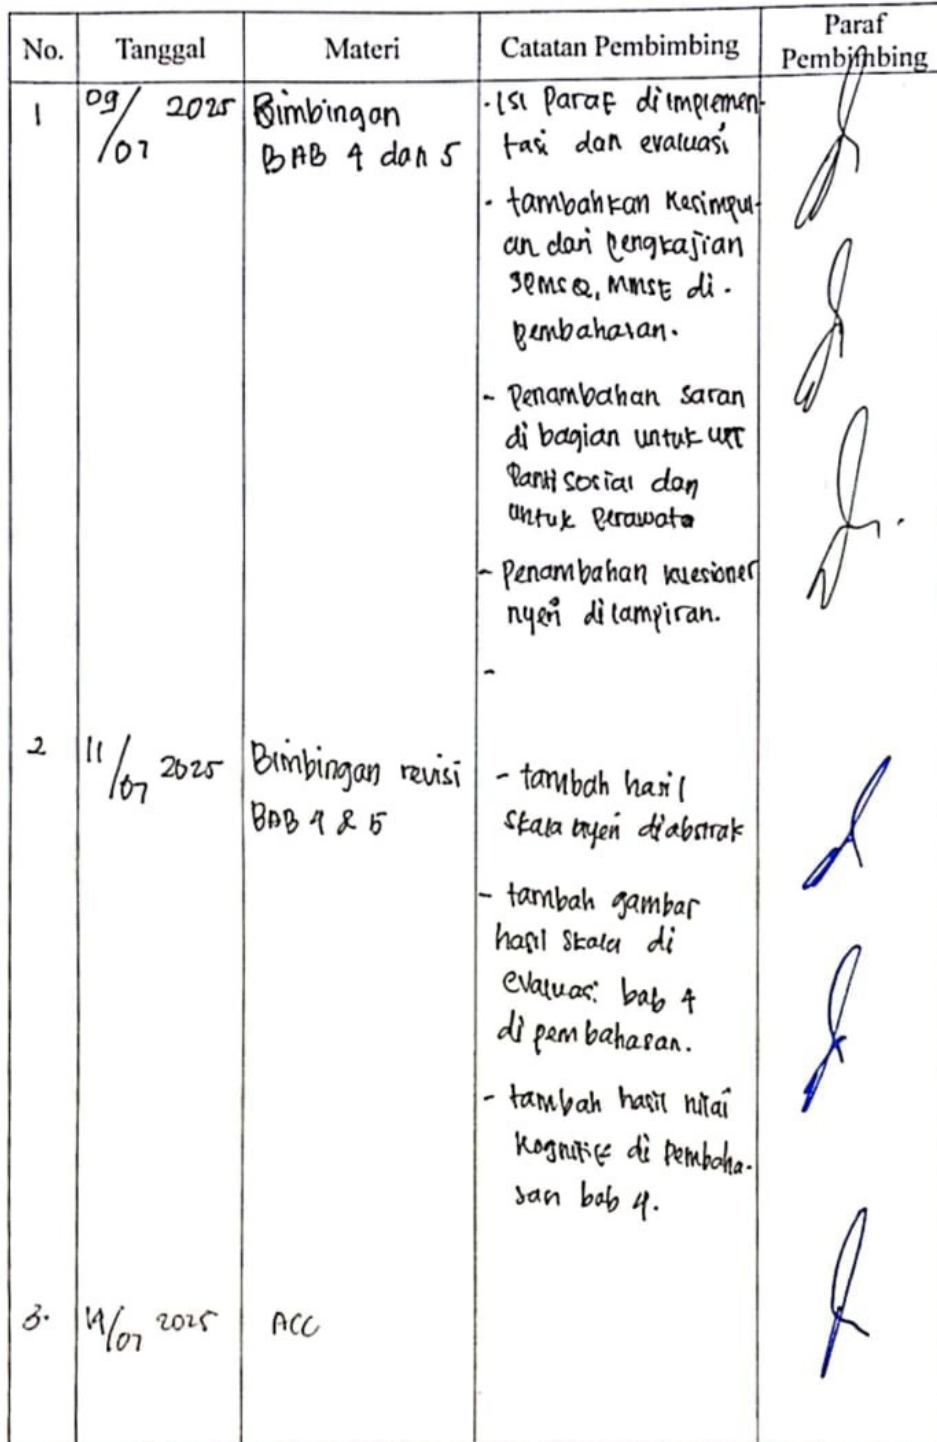 No. Tanggal Materi Catatan Pembimbing Paraf Pembimbing
1 09/07 2025 Bimbingan
BAB 4 dan 5
- Isi Paraf di implemen-
tasi dan evaluasi
- tambahkan Kesimpul-
an dari Pengkajian
SPMSQ, MMSE di.
pembahasan.
- Penambahan saran
di bagian untuk UPT
Panti Sosial dan
untuk Perawata
- Penambahan kuesioner
nyeri di lampiran.
-
2 11/07 2025 Bimbingan revisi
BAB 4 & 5
- tambah hasil
skala nyeri diabstrak
- tambah gambar
hasil skala di
evaluasi bab 4
di pembahasan.
- tambah hasil nilai
Kognitif di Pembaha-
san bab 4.
3. 14/07 2025 ACC